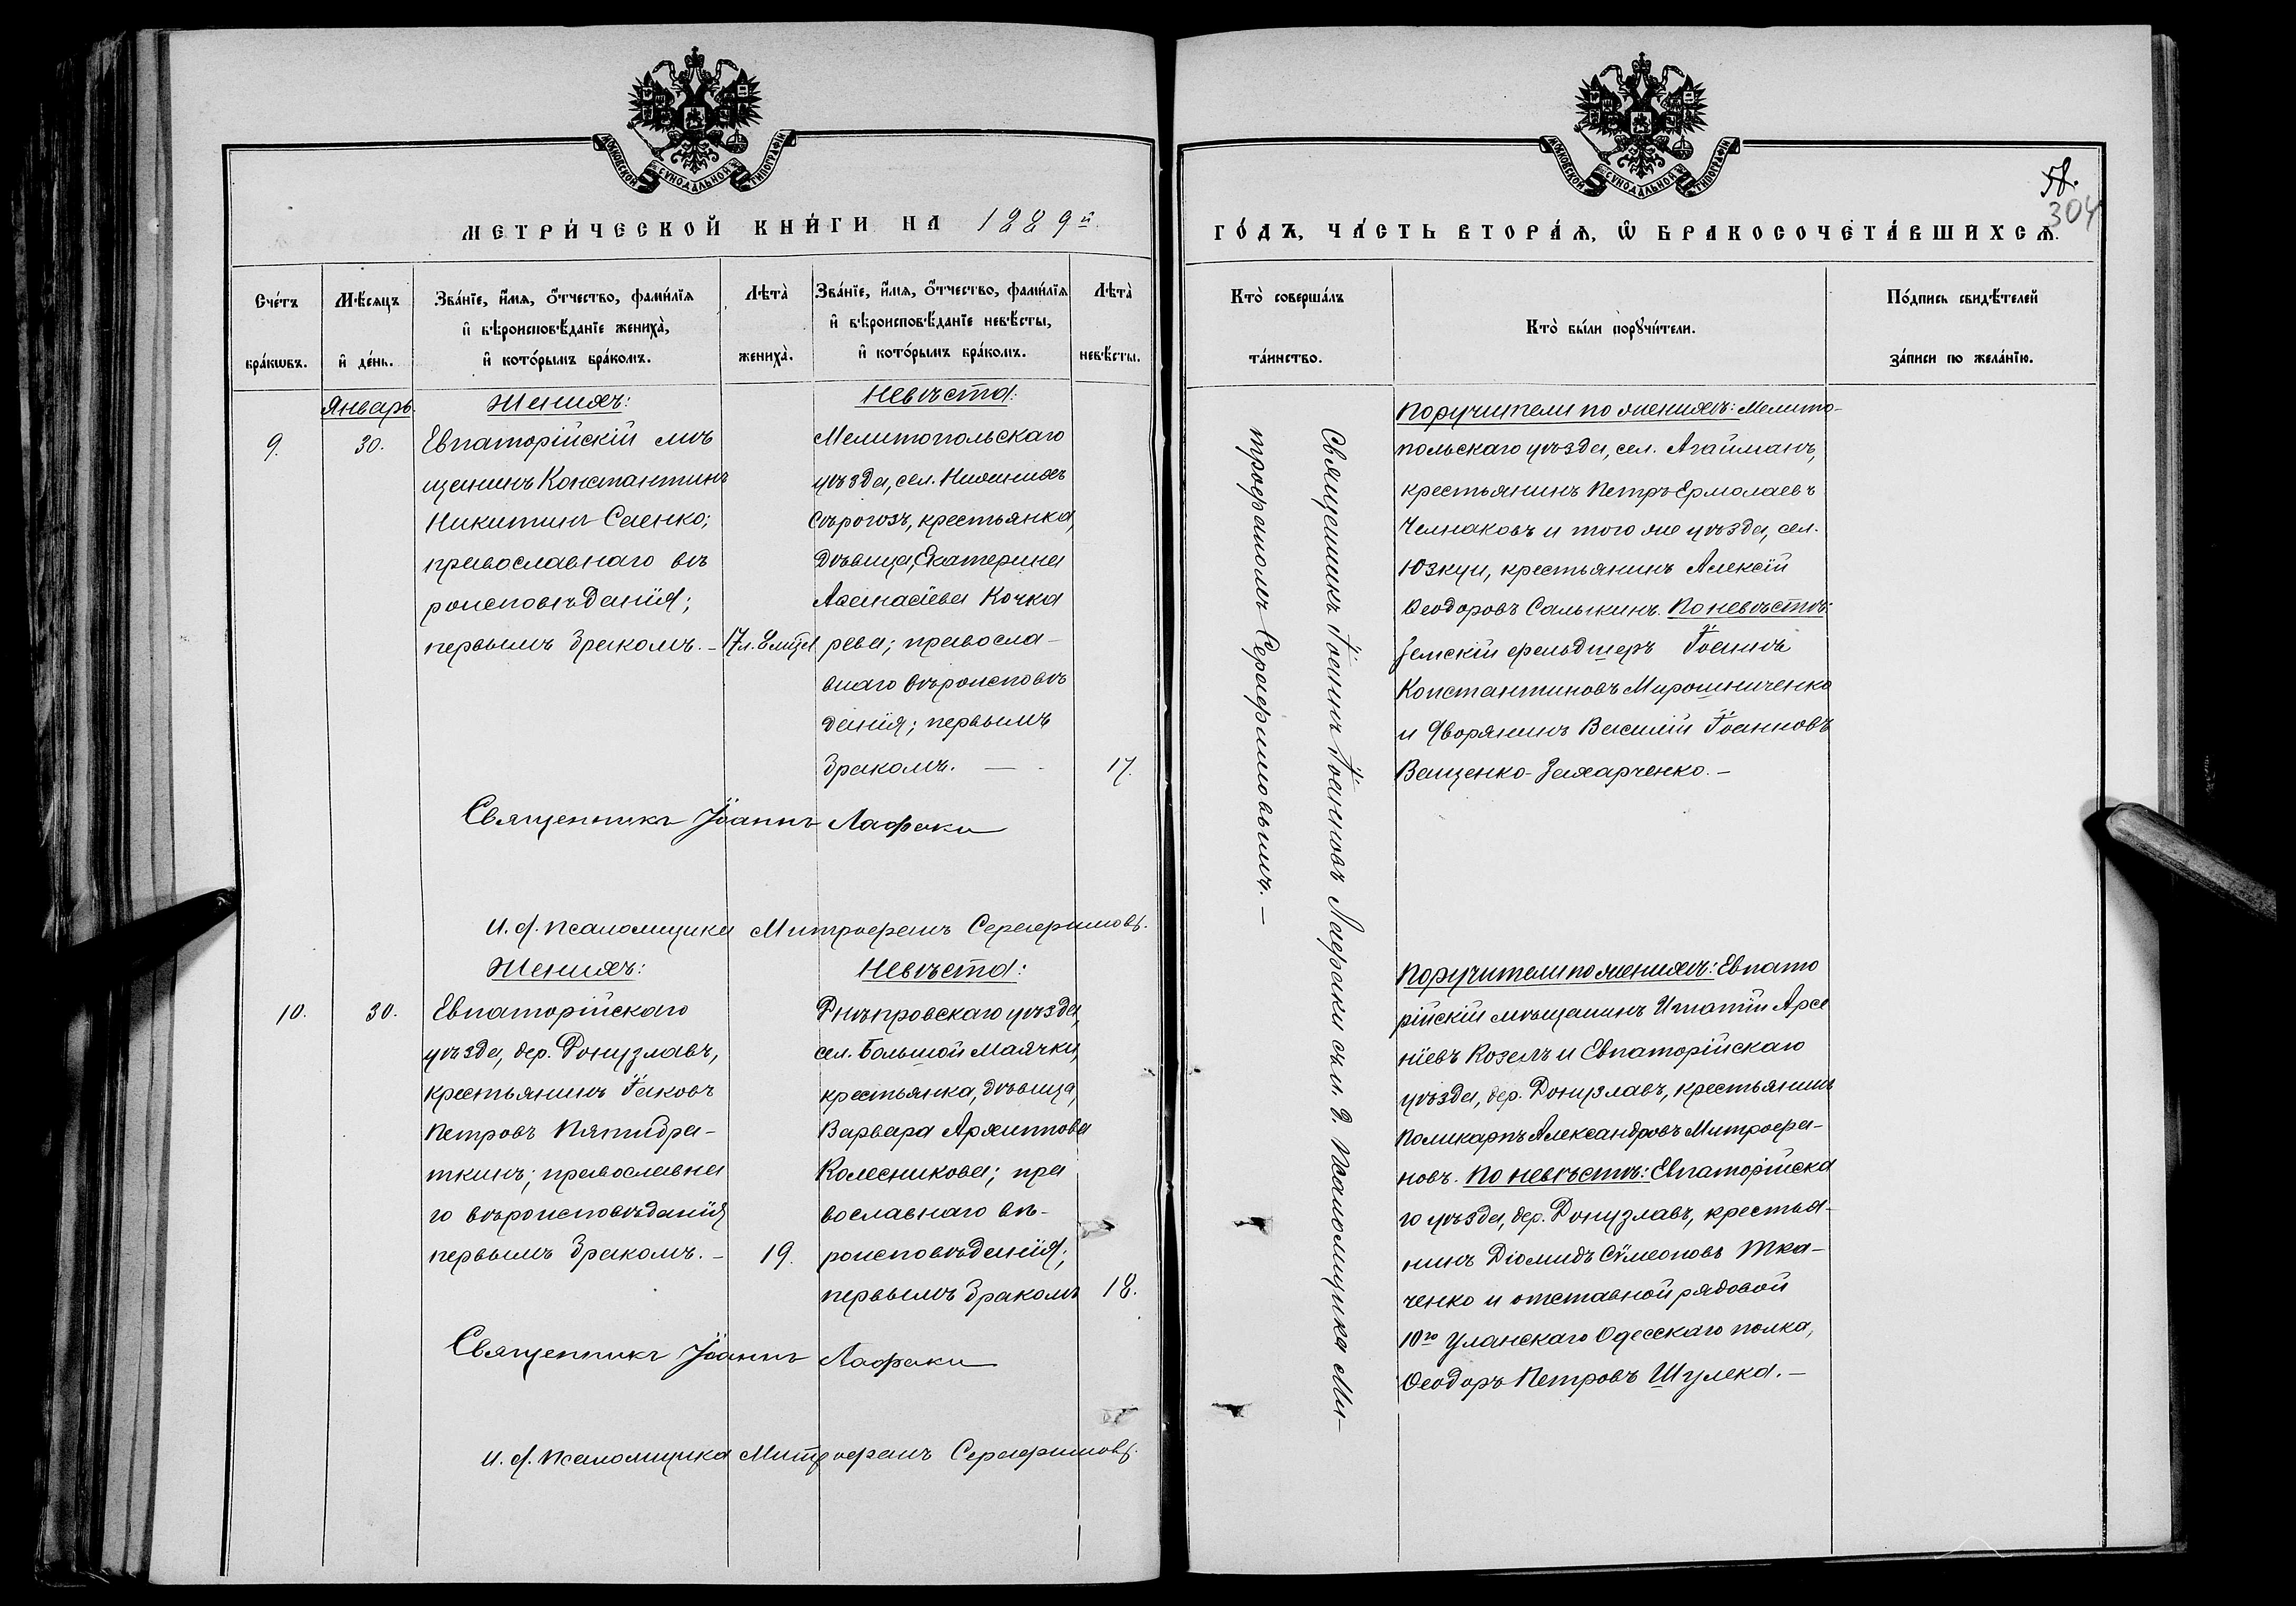 МОСКОВСКОЙ СУНОДАЛЬНОЙ ТИПОГРАФІИ
МЕТРИ́ЧЕСКОЙ КНИ́ГИ НА 1889й
Сче́тъ бра́кѡвъ.
Мѣ́сяцъ и҆ де́нь.
Зва́нїе, и҆́мѧ, ѻ҆́тчество, фами́лїѧ
и҆ вѣроисповѣ́данїе жениха̀,
и҆ кото́рымъ бра́комъ.
Лѣта̀ жениха̀.
Зва́нїе, и҆́мѧ, ѻ҆́тчество, фами́лїѧ
и҆ вѣроисповѣ́данїе невѣ́сты,
и҆ кото́рымъ бра́комъ.
Лѣта̀ невѣ́сты.
Январь.
9.
30.
Женихъ:
Евпаторійскій мѣ
щанинъ Константинъ
Никитинъ Саенко;
православнаго вѣ
роисповѣданія;
первымъ бракомъ. –
17 л. 8 мца
Невѣста:
Мелитопольскаго
уѣзда, сел. Нижнихъ
Сѣрогозъ, крестьянка,
дѣвица, Екатерина
Аѳанасіева Кочка
рева; правосла–
внаго вѣроисповѣ
данія; первымъ
бракомъ. –
17.
Священникъ Іоаннъ Лафаки
И. д. псаломщика Митрофанъ Серафимовъ.
10.
30.
Женихъ:
Евпаторійскаго
уѣзда, дер. Донузлавъ,
крестьянинъ Іаковъ
Петровъ Пятибра–
ткинъ; православна
го вѣроисповѣданія
первымъ бракомъ. –
19.
Невѣста:
Днѣпровскаго уѣзда,
сел. Большой Маячки,
крестьянка, дѣвица,
Варвара Архиппова
Колесникова; пра
вославнаго вѣ–
роисповѣданія;
первымъ бракомъ
18.
Священникъ Іоаннъ Лафаки
И. д. псаломщика Митрофанъ Серафимовъ.
МОСКОВСКОЙ СУНОДАЛЬНОЙ ТИПОГРАФІИ
58.
304
ГО́ДЪ, ЧА́СТЬ ВТОРА́Ѧ, Ѡ҆ БРАКОСОЧЕТА́ВШИХСѦ.
Кто̀ соверша́лъ та́инство.
Кто̀ бы́ли порꙋчи́тели.
По́дпись свидѣ́телей
за́писи по жела́нїю.
Священникъ Іоаннъ Іоанновъ Лафаки съ и. д. псаломщика Ми–
трофаномъ Серафимовымъ. –
Поручители по женихѣ: Мелито–
польскаго уѣзда, сел. Агайманъ,
крестьянинъ Петръ Ермолаевъ
Челнаковъ и того же уѣзда, сел.
Юзкуи, крестьянинъ Алексій
Ѳеодоровъ Салыкинъ. По невѣстѣ:
Земскій фельдшеръ Іоаннъ
Константиновъ Мирошниченко
и дворянинъ Василій Іоанновъ
Ващенко-Захарченко. –
Поручители по женихѣ: Евпато
рійскій мѣщанинъ Игнатій Арсе
ніевъ Козелъ и Евпаторійскаго
уѣзда, дер. Донузлавъ, крестьянинъ
Поликарпъ Александровъ Митрофа–
новъ. По невѣстѣ: Евпаторійска
го уѣзда, дер. Донузлавъ, крестья–
нинъ Діомидъ Сѵмеоновъ Тка–
ченко и отставной рядовой
10го Уланскаго Одесскаго полка,
Ѳеодоръ Петровъ Шулека. –